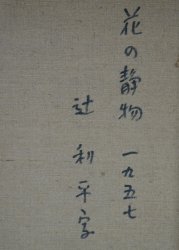 花の静物 一九五七
辻利平字